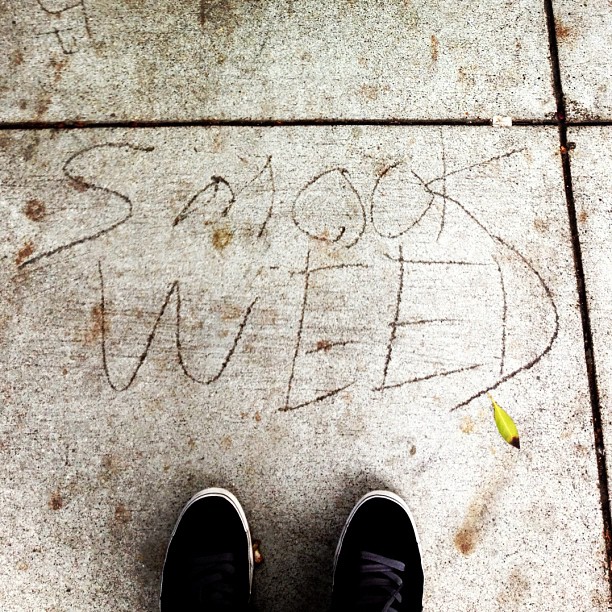 SMOCK
WEED